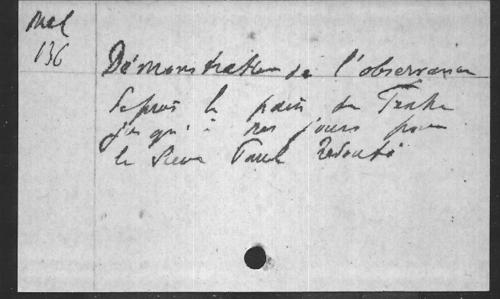 Mel
136
Démonstration de l'observance
depuis la paix de
jusqu'à nos jours par
le Sieur Paul